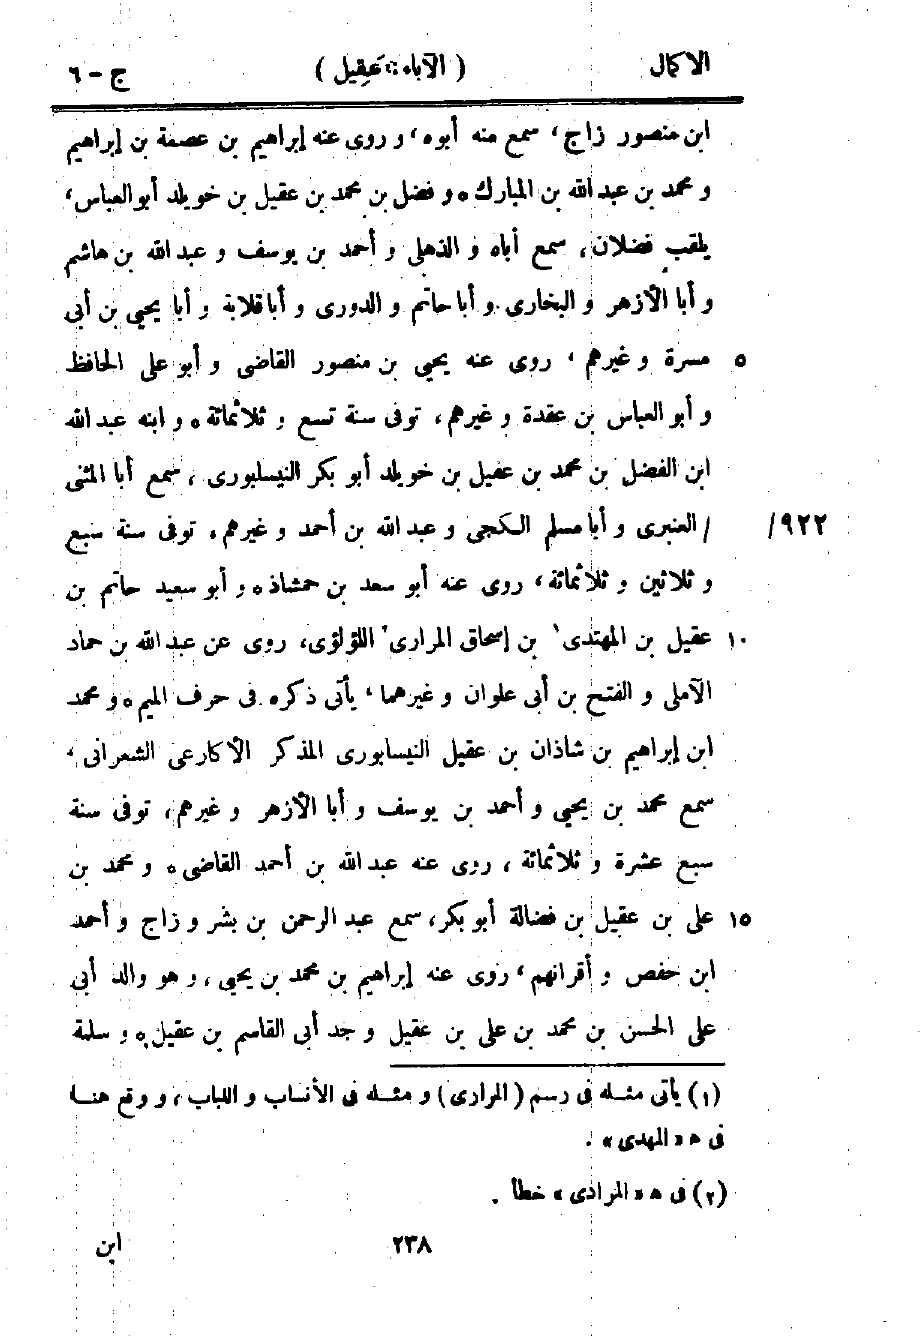 الاكمال ( الآباء: عَقِيل ) ج – ٦
ابن منصور زاج، سمع منه أبوه، و روى عنه إبراهيم بن عصمة بن إبراهيم
و محمد بن عبد الله بن المبارك ه و فضل بن محمد بن عقيل بن خويلد أبو العباس،
يلقب فضلان، سمع أباه و الذهلى و أحمد بن يوسف و عبد الله بن هاشم
و أبا الأزهر و البخارى و أبا حاتم و الدورى و أبا قلابة و أبا يحيى بن أبى
مسرة و غيرهم، روى عنه يحيى بن منصور القاضى و أبو على الحافظ ٥
و أبو العباس بن عقدة و غيرهم، توفى سنة تسع و ثلاثمائة ه و ابنه عبد الله
ابن الفضل بن محمد بن عقيل بن خويلد أبو بكر النيسابورى، سمع أبا المثنى
/ العنبرى و أبا مسلم الكجى و عبد الله بن أحمد و غيرهم، توفى سنة سبع ٩٢٢/
و ثلاثين و ثلاثمائة، روى عنه أبو سعد بن حمشاذ ه و أبو سعيد حاتم بن
عقيل بن المهتدى١ بن إسحاق المرارى٢ اللؤلؤى، روى عن عبد الله بن حماد ١٠
الآملى و الفتح بن أبى علوان و غيرهما، يأتى ذكره فى حرف الميم ه و محمد
ابن إبراهيم بن شاذان بن عقيل النيسابورى المذكر الأكارعى الشعرانى،
سمع محمد بن يحيى و أحمد بن يوسف و أبا الأزهر و غيرهم، توفى سنة
سبع عشرة و ثلاثمائة، روى عنه عبد الله بن أحمد القاضى ه و محمد بن
على بن عقيل بن فضالة أبو بكر، سمع عبد الرحمن بن بشر و زاج و أحمد ١٥
ابن حفص و أقرانهم، روى عنه إبراهيم بن محمد بن يحيى، و هو والد أبى
على الحسن بن محمد بن على بن عقيل و جد أبى القاسم بن عقيل ه و سلمة
(١) يأتى مثله فى رسم (المرارى) و مثله فى الأنساب و اللباب، و وقع هنا
فى ه «المهدى» .
(٢) فى ه «المرادى» خطأ .
٢٣٨ ابن